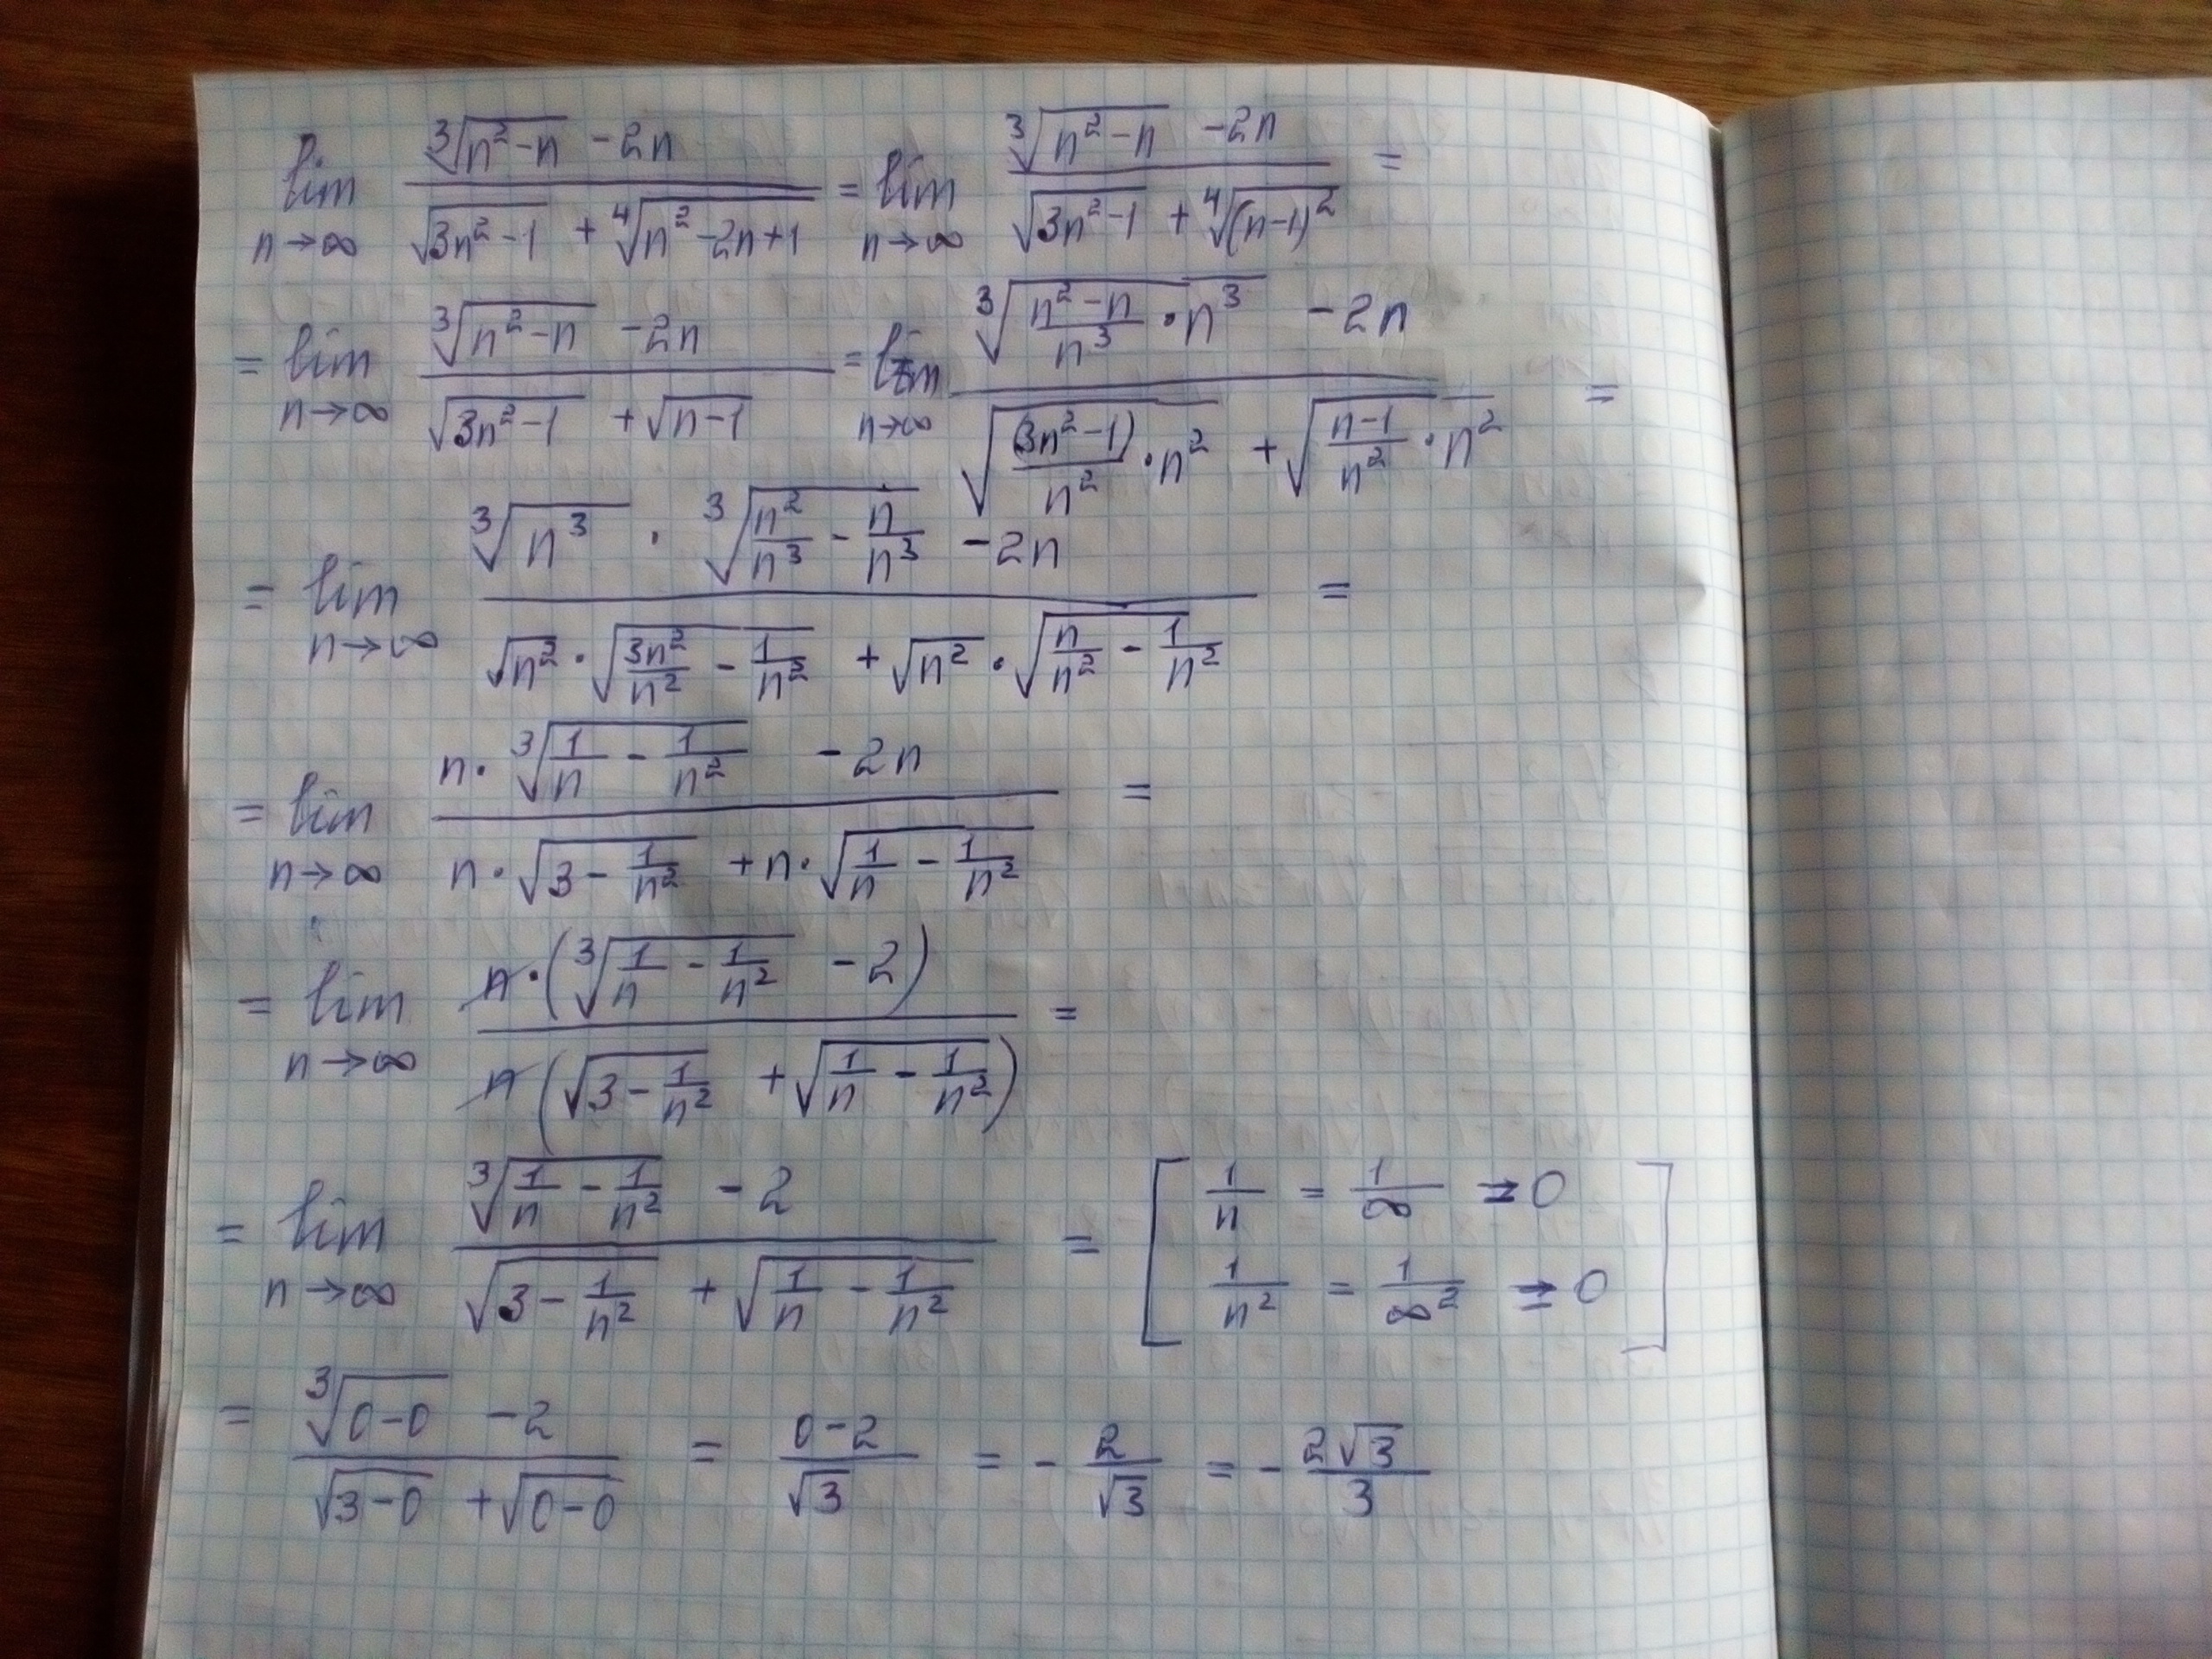 lim n→∞ (∛(n²-n) -2n)/(√(3n²-1) + ∜(n²-2n+1)) = lim n→∞ (∛(n²-n) -2n)/(√(3n²-1) + ∜((n-1)²)) =
= lim n→∞ (∛(n²-n) -2n)/(√(3n²-1) + √(n-1)) = lim n→∞ (∛((n²-n)/n³ · n³) -2n)/(√((3n²-1)/n² · n²) + √((n-1)/n² · n²)) =
= lim n→∞ (∛(n³) · ∛(n²/n³ - n/n³) -2n)/(√(n²) · √(3n²/n² - 1/n²) + √(n²) · √(n/n² - 1/n²)) =
= lim n→∞ (n · ∛(1/n - 1/n²) -2n)/(n · √(3 - 1/n²) + n · √(1/n - 1/n²)) =
= lim n→∞ (n · (∛(1/n - 1/n²) -2))/(n (√(3 - 1/n²) + √(1/n - 1/n²))) =
= lim n→∞ (∛(1/n - 1/n²) -2)/(√(3 - 1/n²) + √(1/n - 1/n²)) = [1/n = 1/∞ = 0
1/n² = 1/∞² = 0]
= (∛(0-0) -2)/(√(3-0) + √(0-0)) = (0-2)/√3 = - 2/√3 = - 2√3/3